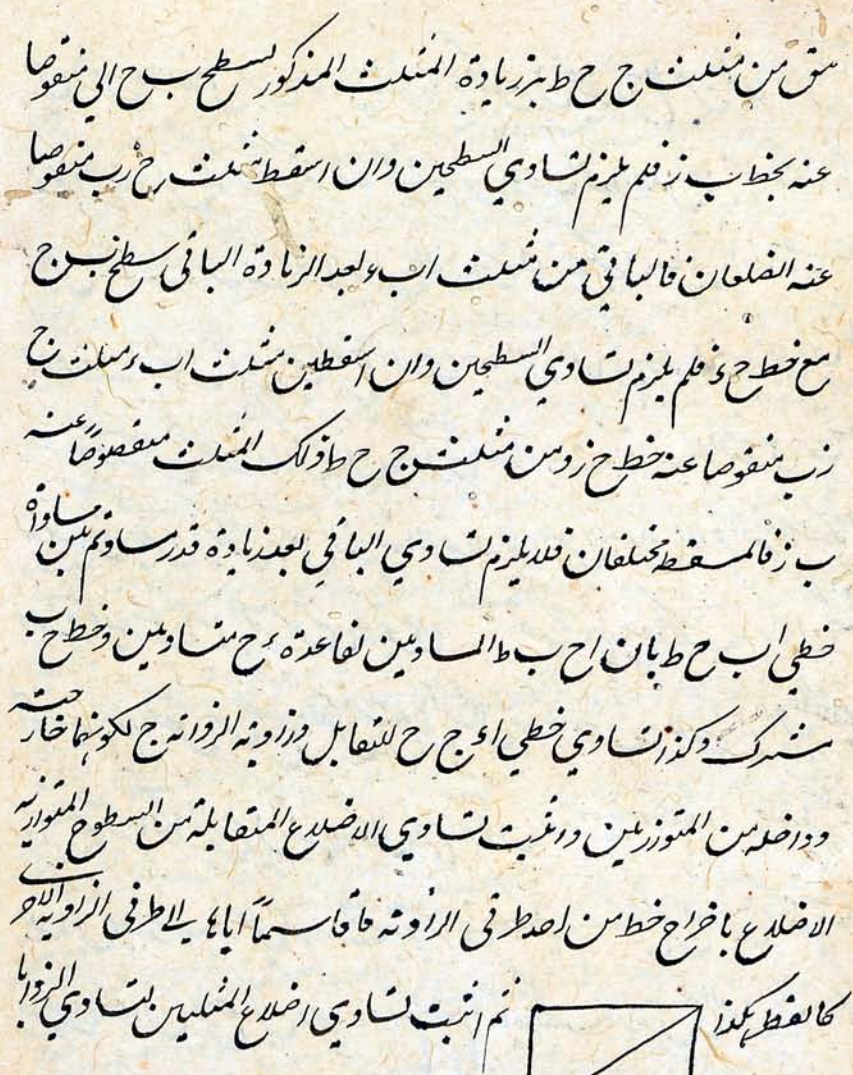 بقى من مثلث ج ح ط بزيادة المثلث المذكور لسطح ب ح الي منقوصا
عنه بخط ب ز فلم يلزم تساوي السطحين وان اسقط مثلث ح ز ب منقوصا
عنه الضلعان فالباقي من مثلث ا ب ء بعد الزيادة الباقي سطح ب ج
مع خط ح ء فلم يلزم تساوي السطحين وان اسقط من مثلث ا ب ء مثلث ح
ز ب منقوصا عنه خط ح ز ومن مثلث ج ح ط ذلك المثلث منقوصاً عنه
ب ز فالمسقط مختلفان فلا يلزم تساوي الباقي بعد زيادة قدر مساو ثم بين مساواة
خطي ا ب ح ط بان ا ح ب ط المساويين لقاعدة ء ح متساويين وخط ح ب
مشترك وكذا تساوي خطي ا ء ج ح للتقابل وزاوية الزواية ج لكونهما خارجة
وداخلة من المتوازيين واثبت تساوي الاضلاع المتقابلة من السطوح المتوازية
الاضلاع باخراج خط من احد طرفي الزاوية قاسماً اياها الي طرفي الزاوية الاخرى
كالقطر هكذا
ثم اثبت تساوي اضلاع المثلثين لتساوي الزوايا